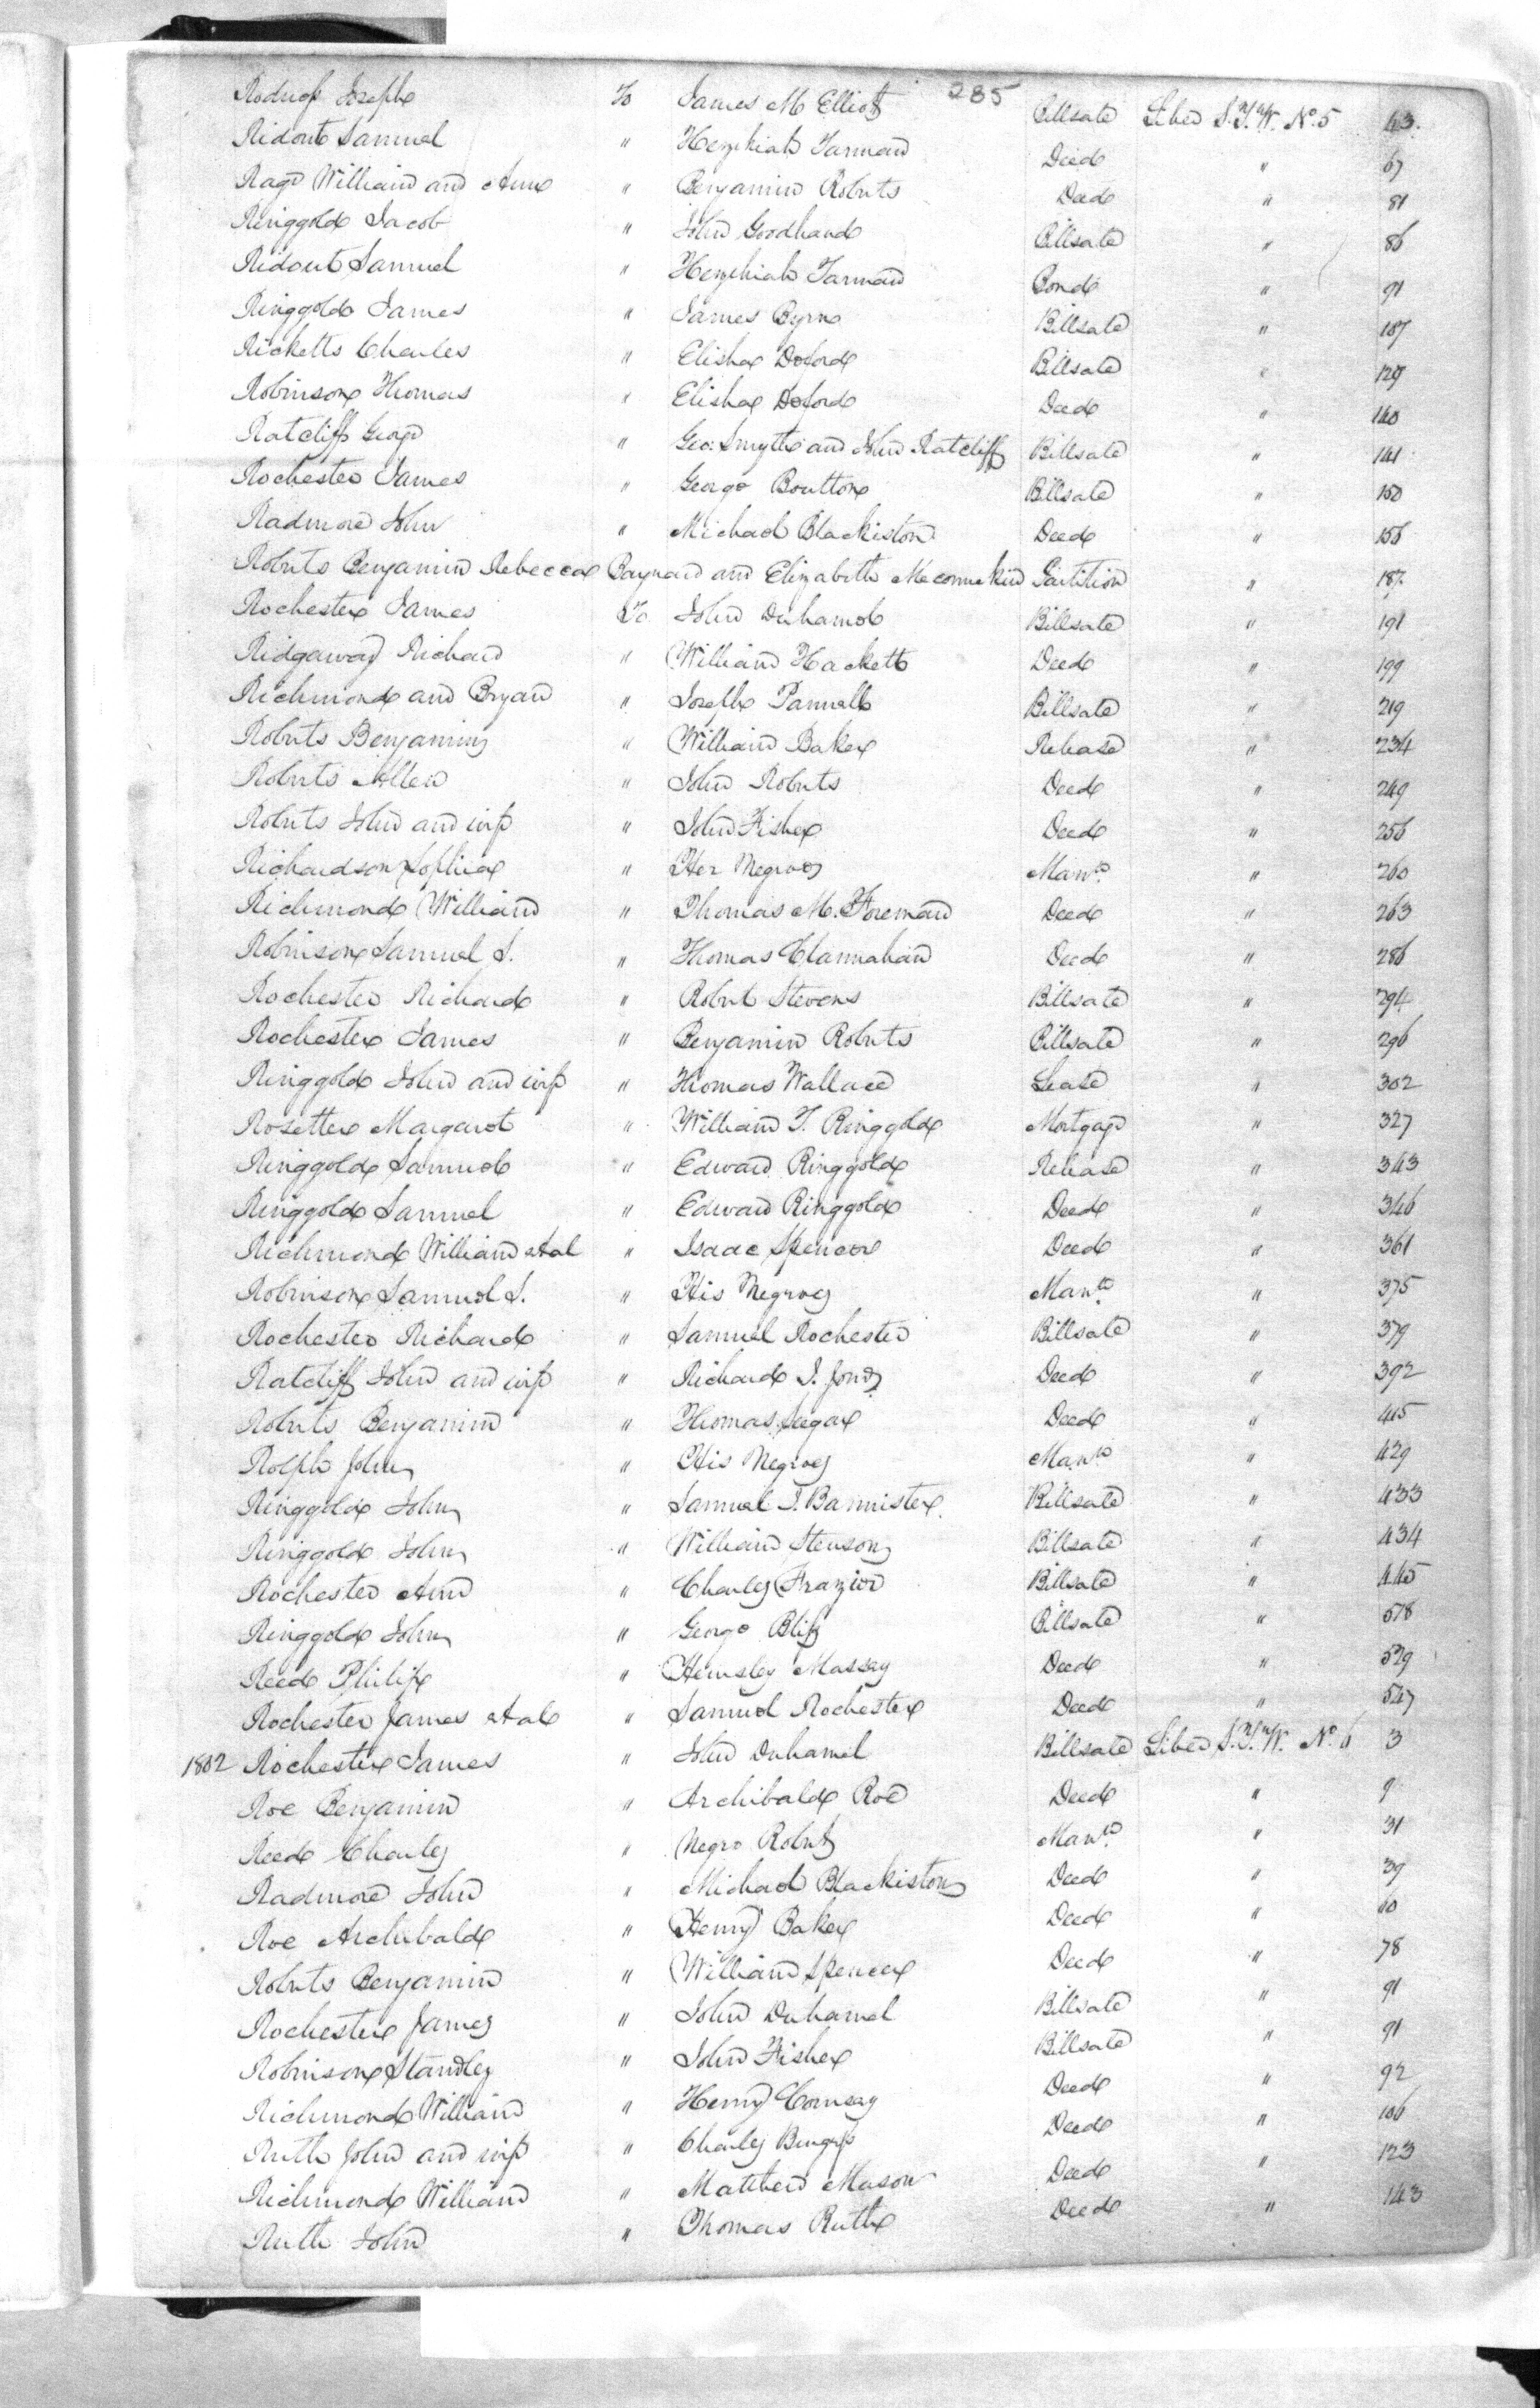 285
Rodnef Joseph To James M Elliott Billsale Liber S.T.W. No. 5 43.
Ridout Samuel " Hezekiah Jarman Deed " 67
Rage William and Ann " Benjamin Roberts Deed " 81
Ringgold Jacob " John Goodhand Billsale " 86
Ridout Samuel " Hezekiah Jarman Bond " 91
Ringgold James " James Byrn Billsale " 107
Ricketts Charles " Elisha Doford Billsale " 129
Robinson Thomas " Elisha Doford Deed " 140
Ratcliff George " Geo: Smyth and John Ratcliff Billsale " 141
Rochester James " George Boutton Billsale " 150
Radmore John " Michael Blackiston Deed " 156
Roberts Benjamin Rebecca Baynard and Elizabeth Meconnekin Partition " 187
Rochester James To John Duhamel Billsale " 191
Ridgaway Richard " William Hackett Deed " 199
Richmond and Bryan " Joseph Pannell Billsale " 219
Roberts Benjamin " William Baker Release " 234
Roberts Allen " John Roberts Deed " 249
Roberts John and wife " John Fisher Deed " 256
Richardson Sophia " Her Negroes Man.n " 260
Richmond William " Thomas M. Foreman Deed " 263
Robinson Samuel S. " Thomas Clannahan Deed " 286
Rochester Richard " Robert Stevens Billsale " 294
Rochester James " Benjamin Roberts Billsale " 296
Ringgold John and wife " Thomas Wallace Lease " 302
Rosetter Margaret " William T. Ringgold Mortgage " 327
Ringgold Samuel " Edward Ringgold Release " 343
Ringgold Samuel " Edward Ringgold Deed " 346
Richmond William et al " Isaac Spencer Deed " 361
Robinson Samuel S. " His Negroes Man.n " 375
Rochester Richard " Samuel Rochester Billsale " 379
Ratcliff John and wife " Richard I. Jones Deed " 392
Roberts Benjamin " Thomas Segar Deed " 415
Rolph John " His Negroes Man.n " 429
Ringgold John " Samuel I. Bannister Billsale " 433
Ringgold John " William Stenson Billsale " 434
Rochester Ann " Charles Frazier Billsale " 445
Ringgold John " George Bliss Billsale " 518
Reed Philip " Hemsley Massey Deed " 529
Rochester James et al " Samuel Rochester Deed " 547
1802 Rochester James " John Duhamel Billsale Liber S.T.W. No. 6 3
Roe Benjamin " Archibald Roe Deed " 9
Reed Charles " Negro Robert Man.n " 31
Radmore John " Michael Blackiston Deed " 39
Roe Archibald " Henry Baker Deed " 60
Roberts Benjamin " William Spencer Deed " 78
Rochester James " John Duhamel Billsale " 91
Robinson Standley " John Fisher Billsale " 91
Richmond William " Henry Comegy Deed " 92
Ruth John and wife " Charles Deed " 106
Richmond William " Matthew Mason Deed " 123
Ruth John " Thomas Ruth Deed " 143